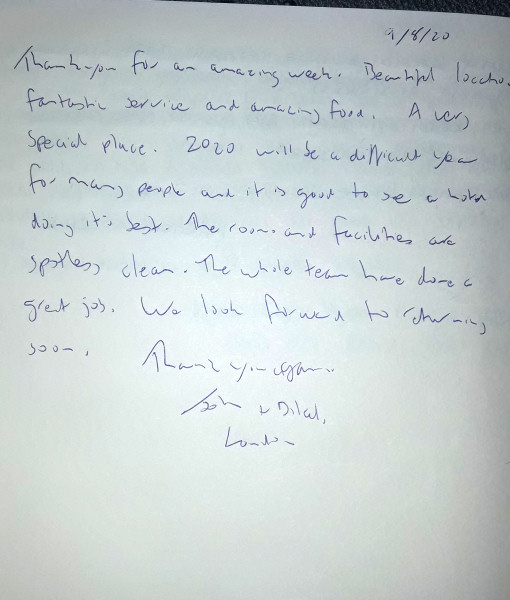 9/8/20
Thank-you for an amazing week. Beautiful locatio
fantastic service and amazing food. A very
special place. 2020 will be a difficult year
for many people and it is good to see a hotel
doing it's best. The rooms and facilities are
spotless clean. The whole team have done a
great job. We look forward to returning
soon.
Thank you again.
+ Dilal,
London